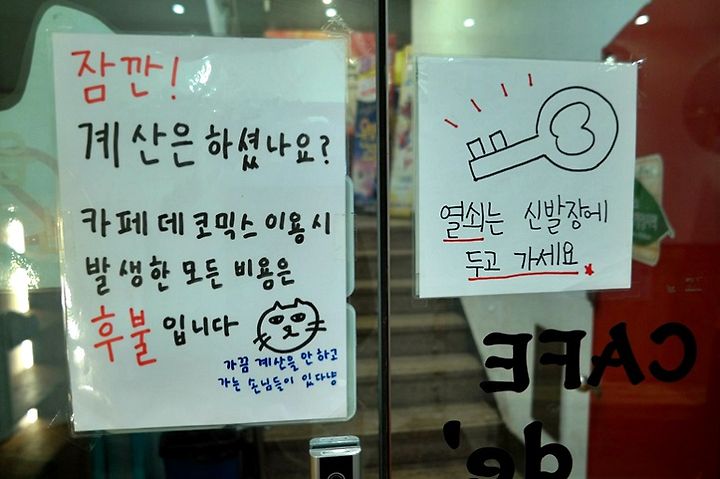 잠깐!
계산은 하셨나요?
카페데코믹스 이용시
발생한 모든 비용은
후불입니다
가끔 계산을 안 하고
가는 손님들이 있다냥
열쇠는 신발장에
두고 가세요
CAFE
de'